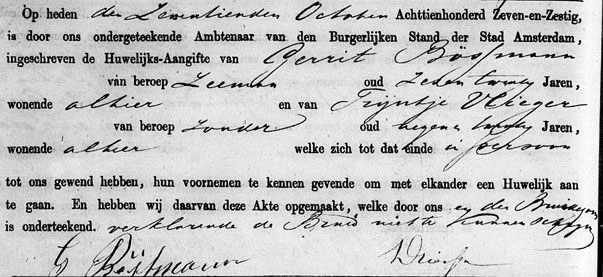 Op heden den Zeventienden October Achttienhonderd Zeven-en-Zestig,
is door ons ondergeteekende Ambtenaar van den Burgerlijken Stand der Stad Amsterdam,
ingeschreven de Huwelijks-Aangifte van Gerrit Bössmann
van beroep Zeeman oud Zeven twintig Jaren,
wonende alhier en van Trijntje Vlieger
van beroep Zonder oud negen twintig Jaren,
wonende alhier welke zich tot dat einde in persoon
tot ons gewend hebben, hun voornemen te kennen gevende om met elkander een Huwelijk aan
te gaan. En hebben wij daarvan deze Akte opgemaakt, welke door ons en den Bruidegom
is onderteekend. verklarende de Bruid niet te kunnen schrijven
G Bössmann